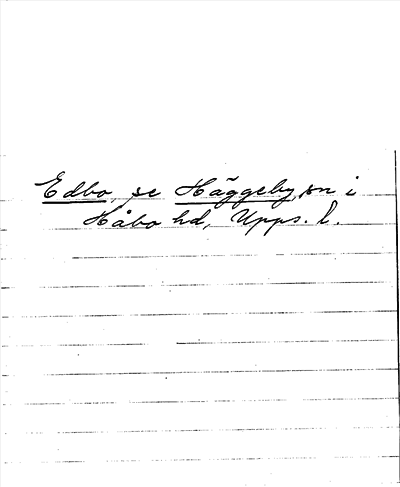 Edbo, se Häggeby, sn i
Håbo hd, Upps. l.